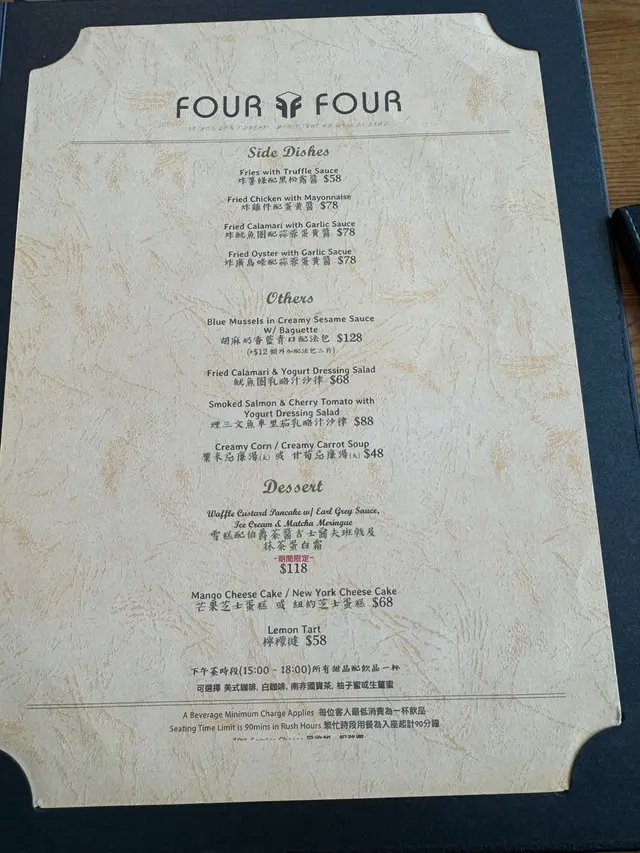 FOUR FOUR
Side Dishes
Fries with Truffle Sauce
炸薯條配黑松露醬 $58
Fried Chicken with Mayonnaise
炸雞件配蛋黃醬 $78
Fried Calamari with Garlic Sauce
炸魷魚圈配蒜蓉蛋黃醬 $78
Fried Oyster with Garlic Sacue
炸廣島蠔配蒜蓉蛋黃醬 $78
Others
Blue Mussels in Creamy Sesame Sauce
W/ Baguette
胡麻奶香藍青口配法包 $128
(+$12 額外加配法包三片)
Fried Calamari & Yogurt Dressing Salad
魷魚圈乳酪汁沙律 $68
Smoked Salmon & Cherry Tomato with
Yogurt Dressing Salad
煙三文魚車厘茄乳酪汁沙律 $88
Creamy Corn / Creamy Carrot Soup
粟米忌廉湯(大) 或 甘筍忌廉湯(大) $48
Dessert
Waffle Custard Pancake w/ Earl Grey Sauce,
Ice Cream & Matcha Meringue
雪糕配伯爵茶醬吉士醬夫班戟及
抹茶蛋白霜
-期間限定-
$118
Mango Cheese Cake / New York Cheese Cake
芒果芝士蛋糕 或 紐約芝士蛋糕 $68
Lemon Tart
檸檬撻 $58
下午茶時段(15:00 - 18:00)所有甜品配飲品一杯
可選擇 美式咖啡, 白咖啡, 南非國寶茶, 柚子蜜或生薑蜜
A Beverage Minimum Charge Applies 每位客人最低消費為一杯飲品
Seating Time Limit is 90mins in Rush Hours 繁忙時段用餐為入座起計90分鐘